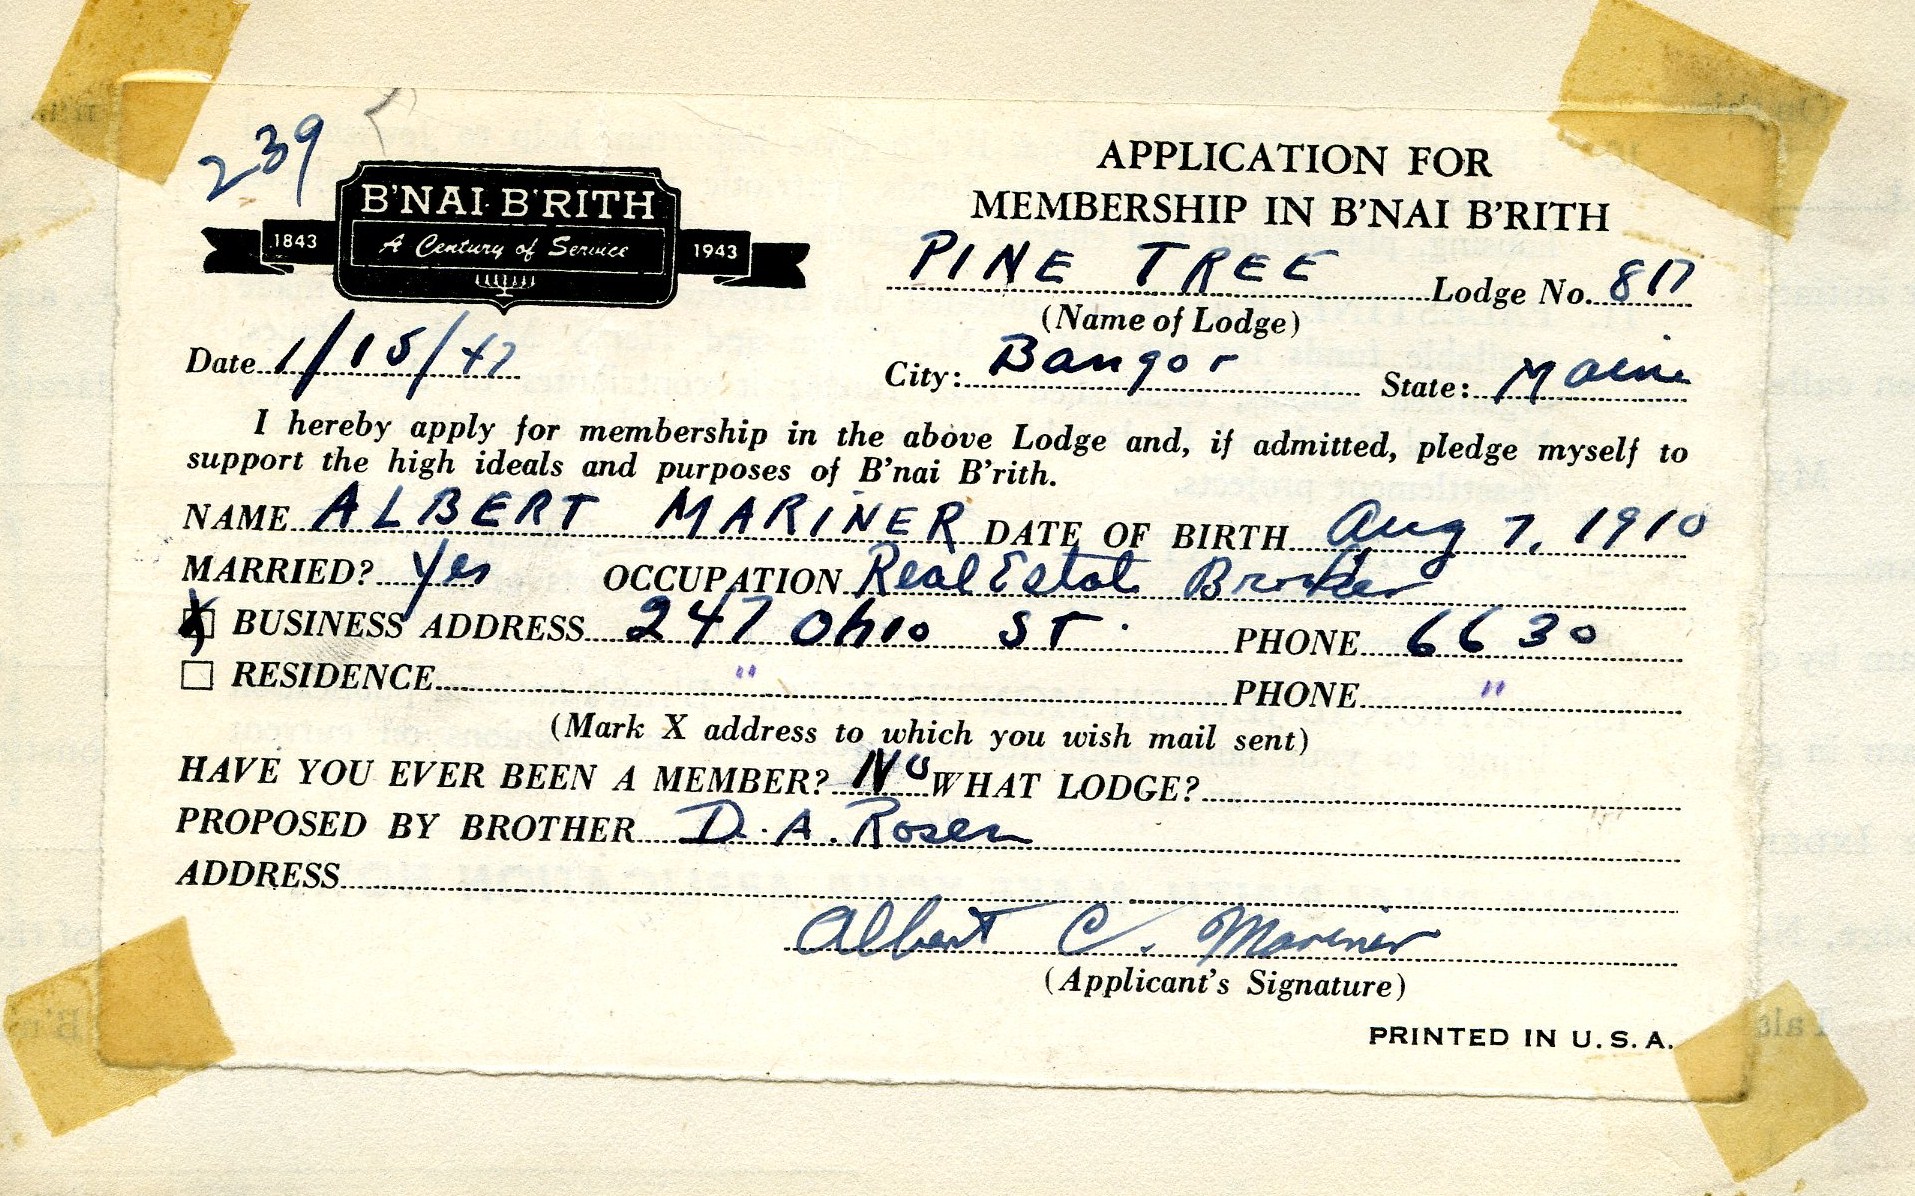 239
B'NAI B'RITH
1843 A Century of Service 1943
APPLICATION FOR
MEMBERSHIP IN B'NAI B'RITH
PINE TREE Lodge No. 817
(Name of Lodge)
Date 1/15/47 City: Bangor State: Maine
I hereby apply for membership in the above Lodge and, if admitted, pledge myself to
support the high ideals and purposes of B'nai B'rith.
NAME ALBERT MARINER DATE OF BIRTH Aug 7, 1910
MARRIED? Yes OCCUPATION Real Estate Broker
X BUSINESS ADDRESS 247 Ohio ST. PHONE 6630
RESIDENCE " PHONE "
(Mark X address to which you wish mail sent)
HAVE YOU EVER BEEN A MEMBER? No WHAT LODGE?
PROPOSED BY BROTHER D. A. Rosen
ADDRESS
Albert C. Mariner
(Applicant's Signature)
PRINTED IN U.S.A.